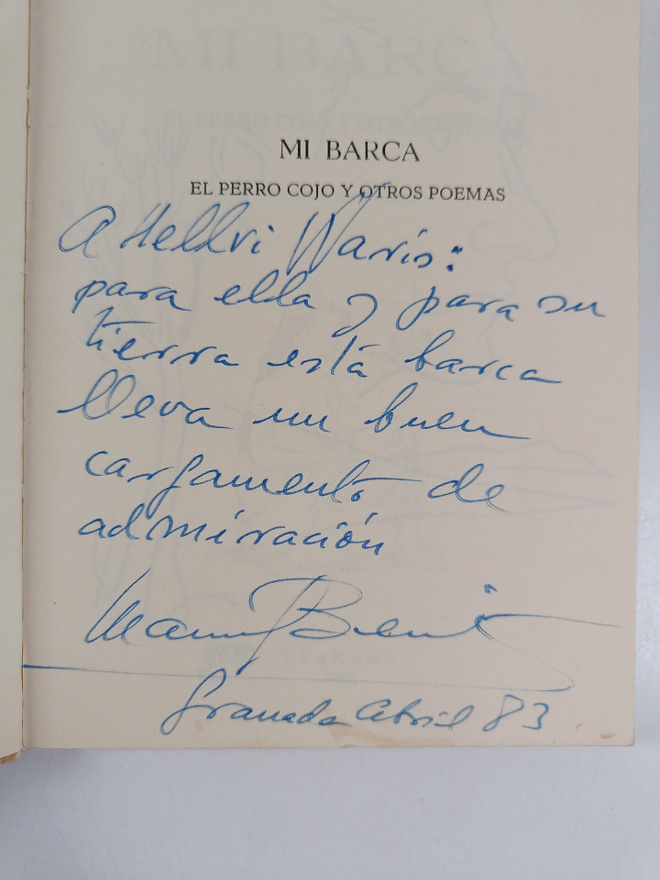 MI BARCA
EL PERRO COJO Y OTROS POEMAS
A Hellvi Waris:
para ella y para su
tierra está barca
lleva un buen
cargamento de
admiración
Manuel Benítez
Granada Abril 83